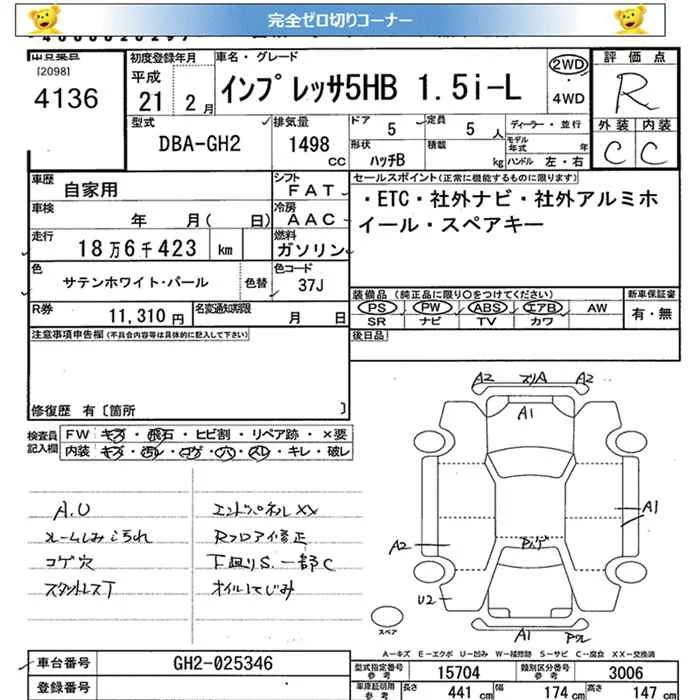 完全ゼロ切りコーナー
[2098]
4136
初度登録年月
平成
21 2月
車名・グレード
インプレッサ5HB 1.5i-L
2WD
・
4WD
評価点
R
外装 内装
C C
型式
DBA-GH2
排気量
1498
CC
ドア 5
定員 5 人
形状
ハッチB
積載 kg
ディーラー・並行
モデル年式 年
ハンドル 左・右
車歴 自家用
シフト
FAT
車検 年 月( 日)
冷房
AAC
走行 18万6千423 km
燃料
ガソリン
色 サテンホワイト・パール
色替
色コード
37J
R券 11,310 円
名変通知期限 月 日
セールスポイント(正常に機能するものに限ります)
・ETC・社外ナビ・社外アルミホ
イール・スペアキー
装備品(純正品に限り○をつけてください)
新車保証書
PS PW ABS エアB AW
有・無
SR ナビ TV カワ
後日品
注意事項申告欄(不具合内容等は具体的に記入して下さい)
修復歴 有〔箇所 〕
検査員
記入欄
FW キズ・飛石・ヒビ割・リペア跡・×要
内装 キズ・汚レ・コゲ・穴・スレ・キレ・破レ
A.U
ルームしみ汚れ
コゲ穴
スタットレスT
エンドパネルXX
Rフロア修正
下回りS.一部C
オイルにじみ
A2
A2
A1
A1
A2
U2
A1
スペア
A-キズ E-エクボ U-凹み W-補修跡 S-サビ C-腐食 XX-交換済
車台番号 GH2-025346
登録番号
型式指定番号
参考
15704
類別区分番号
参考
3006
車庫証明用
参考
長さ 441 cm
幅 174 cm
高さ 147 cm